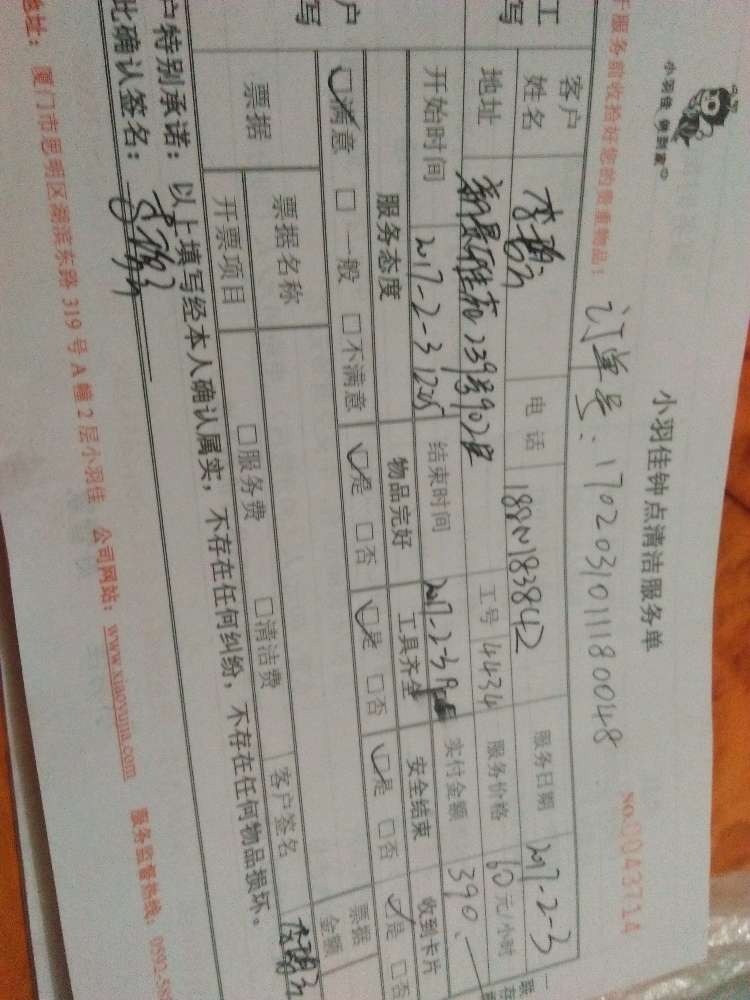 小羽佳 倾到家
小羽佳钟点清洁服务单
NO.0043714
于服务前收拾好您的贵重物品！
订单号：17020310111180048
客户姓名 电话 服务日期 2017-2-3
地址 239号902室 工号 4434 服务价格 60元/小时
开始时间 2017-2-3 结束时间 2017-2-3 实付金额 390.—
服务态度 物品完好 工具齐全 安全结束 收到卡片
☑满意 □一般 □不满意 ☑是 □否 ☑是 □否 ☑是 □否 ☑是 □否
票据 票据名称 票据金额
开票项目 □服务费 □清洁费 客户签名
户特别承诺：以上填写经本人确认属实，不存在任何纠纷，不存在任何物品损坏。
此确认签名：
地址：厦门市思明区湖滨东路319号A幢2层小羽佳 公司网站：www.xiaoyujia.com 服务监督热线：0592-58